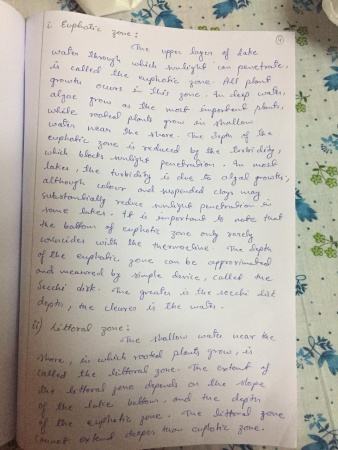 i. Euphotic zone:
4
The upper layer of lake
water through which sunlight can penetrate,
is called the euphotic zone. All plant
growth occurs in this zone. In deep water,
algae grow as the most important plants,
while rooted plants grow in shallow
water near the shore. The depth of the
euphotic zone is reduced by the turbidity,
which blocks sunlight penetration. In most
lakes, the turbidity is due to algal growth,
although colour and suspended clays may
substantially reduce sunlight penetration in
some lakes. It is important to note that
the bottom of euphotic zone only rarely
coincides with the thermocline. The depth
of the euphotic zone can be approximated
and measured by simple device, called the
Secchi disk. The greater is the secchi disk
depth, the clearer is the water.
ii) Littoral zone:
The shallow water near the
shore, in which rooted plants grow, is
called the littoral zone. The extent of
the littoral zone depends on the slope
of the lake bottom, and the depth
of the euphotic zone. The littoral zone
cannot extend deeper than euphotic zone.